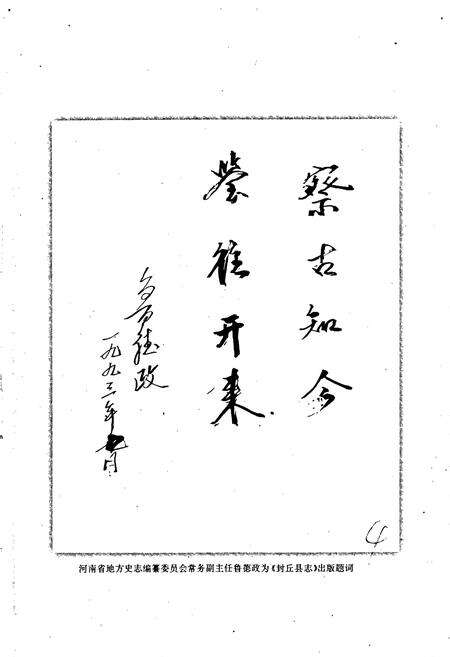 察古知今
鉴往开来
鲁德政
一九九三年七月
4
河南省地方史志编纂委员会常务副主任鲁德政为《封丘县志》出版题词